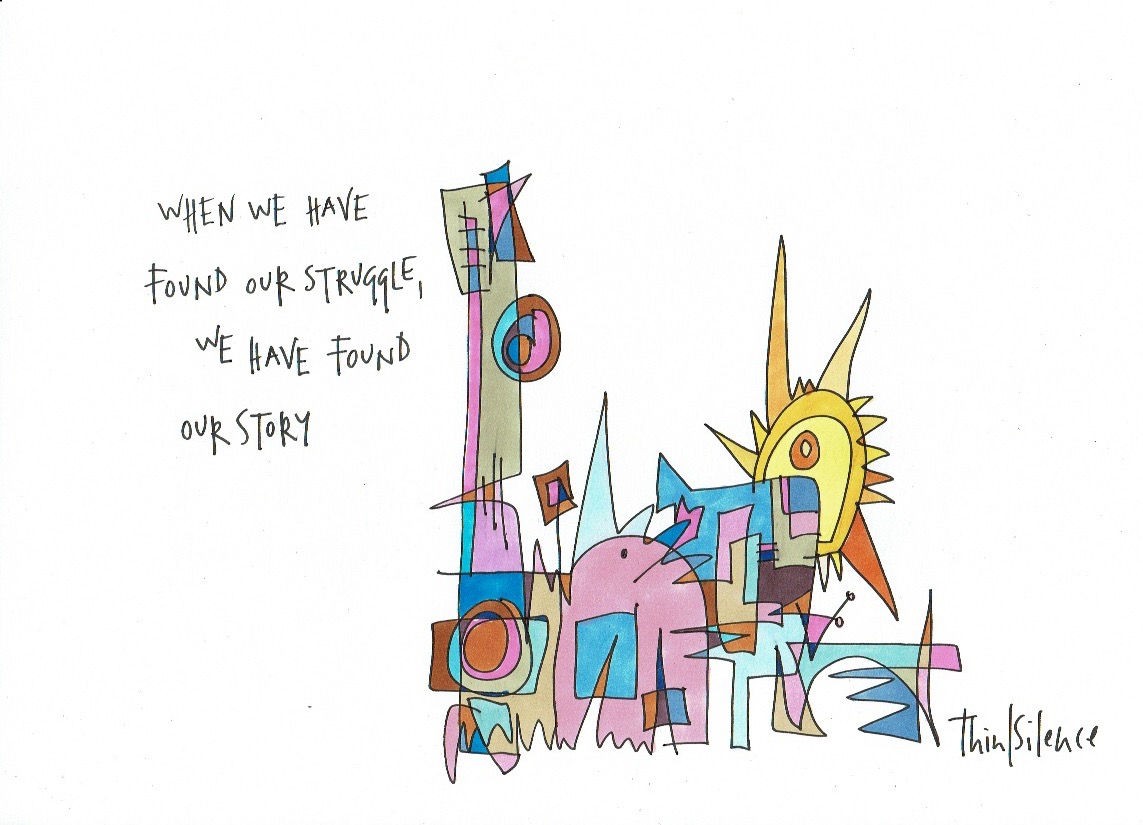 WHEN WE HAVE
FOUND OUR STRUGGLE,
WE HAVE FOUND
OUR STORY
Thin|Silence